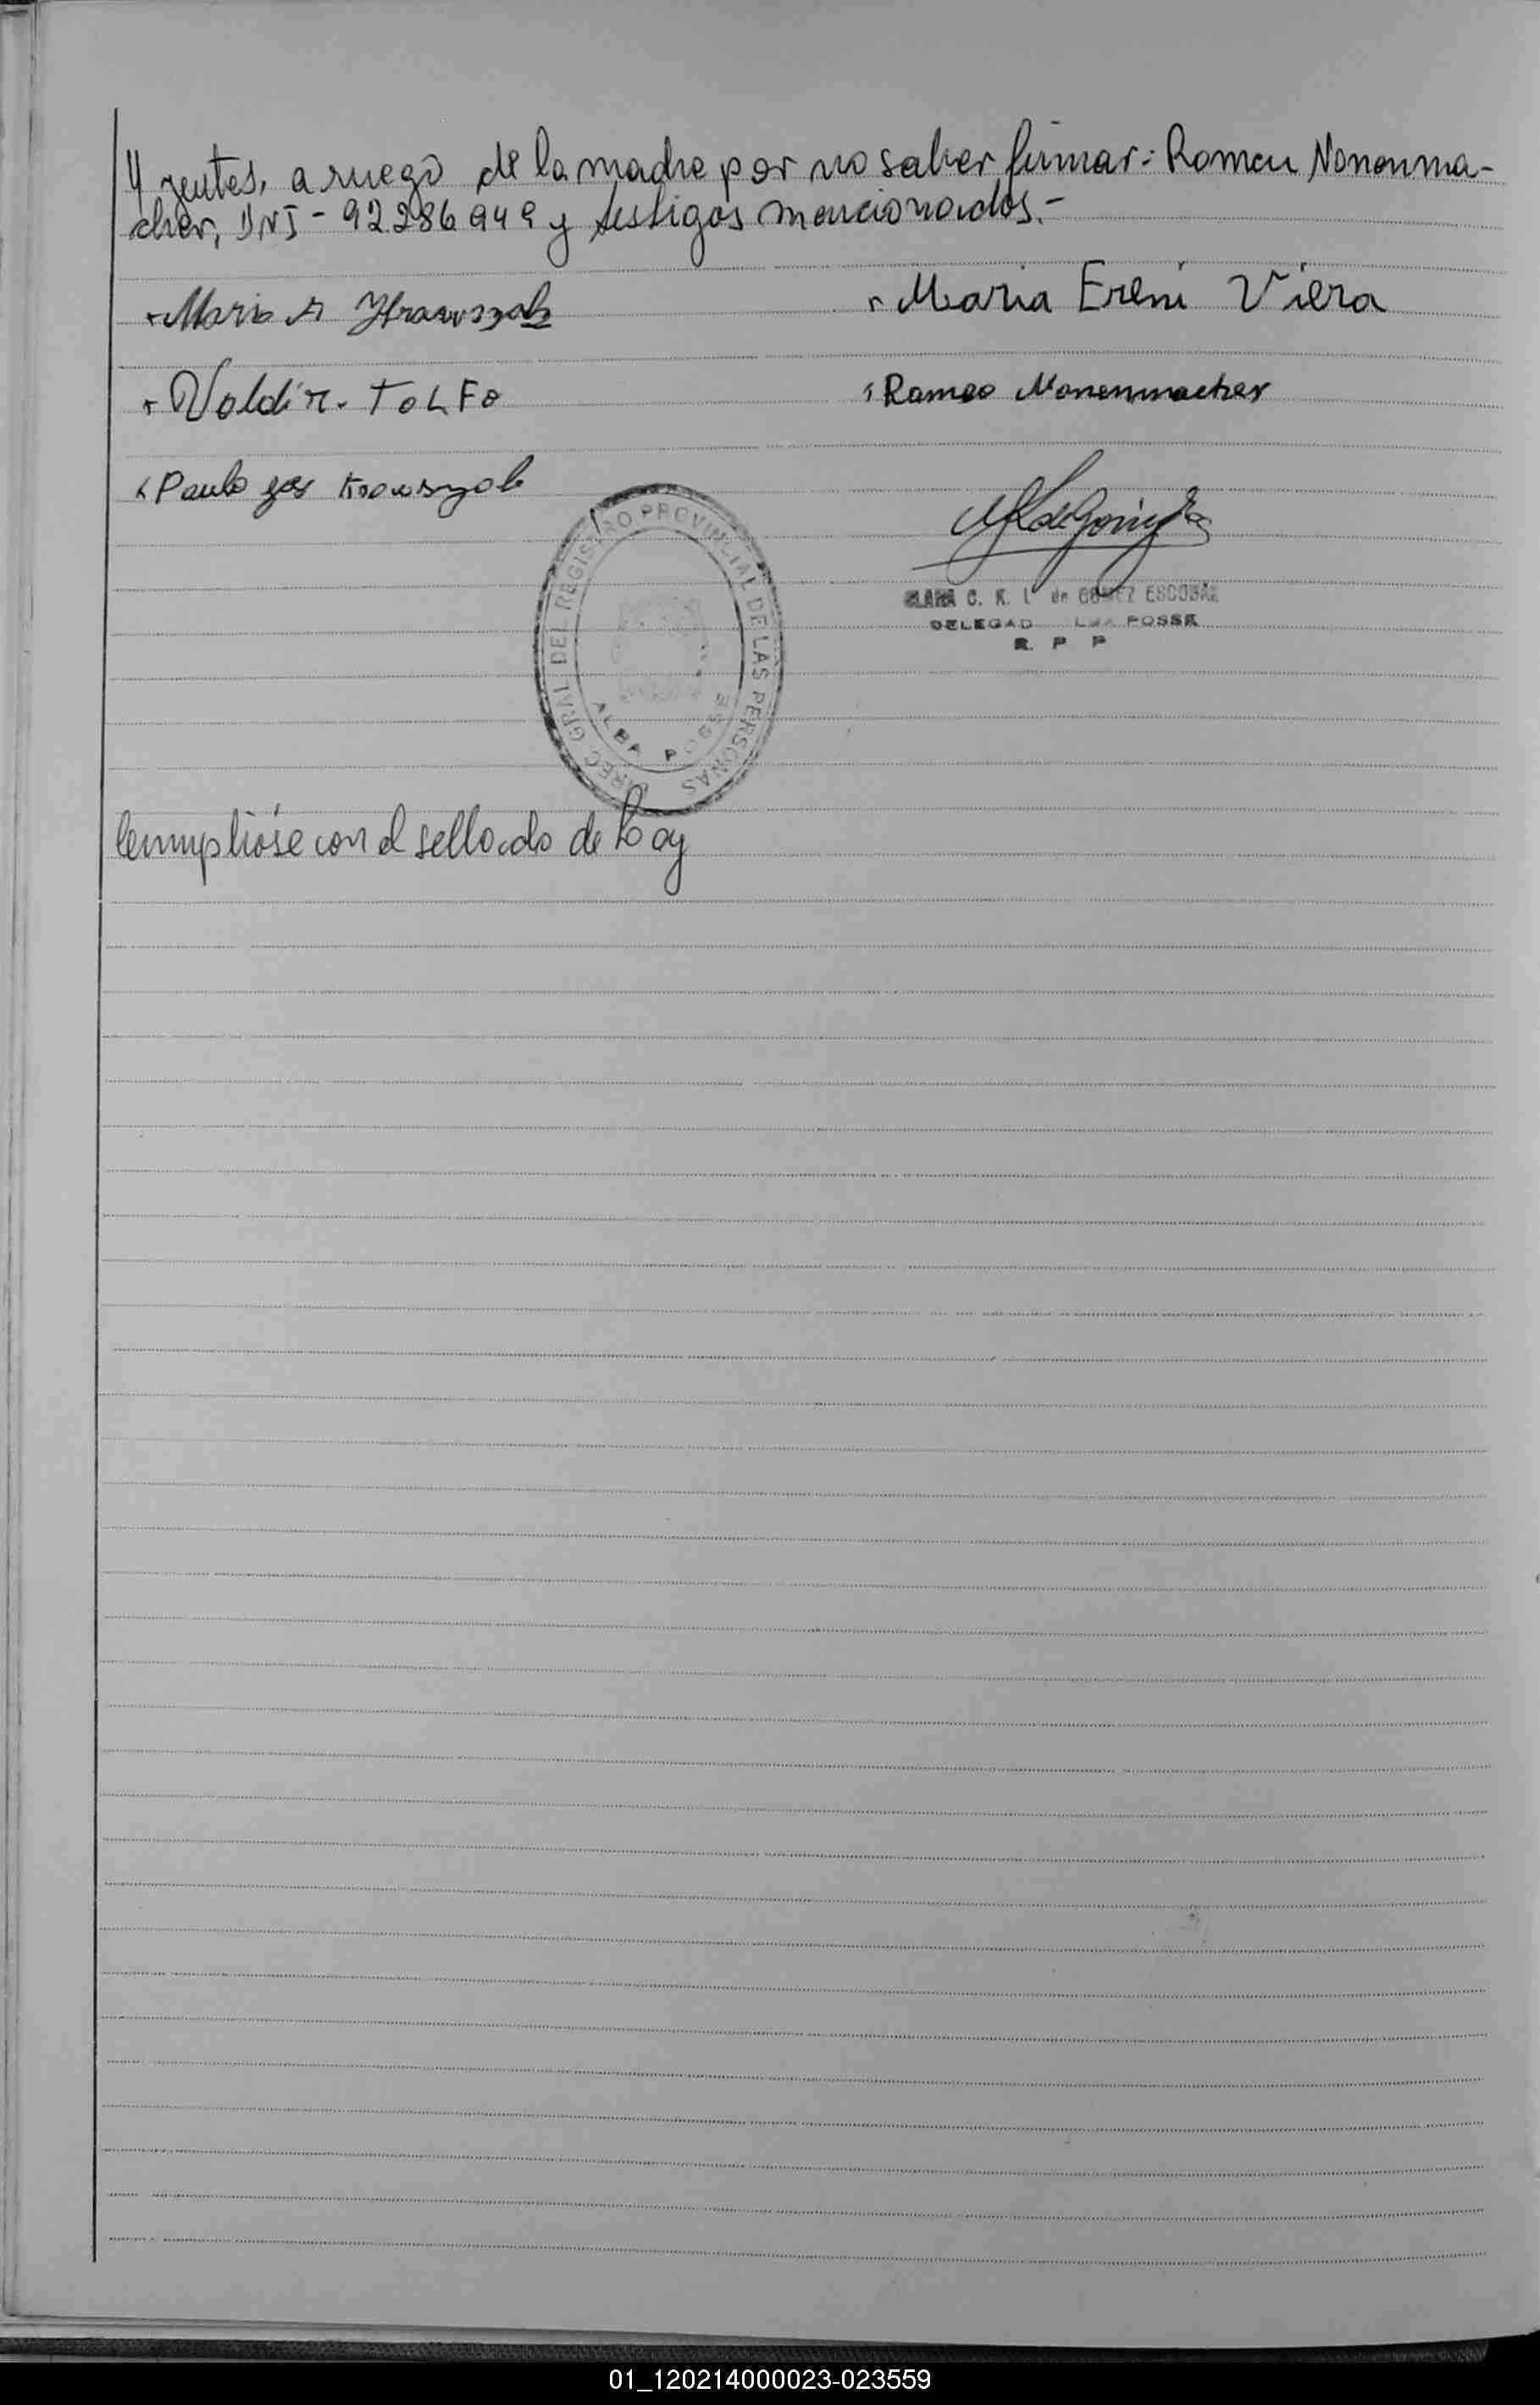 yentes, a ruego de la madre por no saber firmar: Romeu Nonenma-
cher, DNI - 92286949 y testigos mencionados.-
Maria Ereni Viera
Valdir. ToLFo
Romeo Nonenmacher
Paulo
DIREC GRAL DEL REGISTRO PROVINCIAL DE LAS PERSONAS
ALBA POSSE
CLARA C. K. L de GOMEZ ESCOBAR
DELEGAD POSSE
R. P P
Cumplióse con el sellado de Ley
01_120214000023-023559